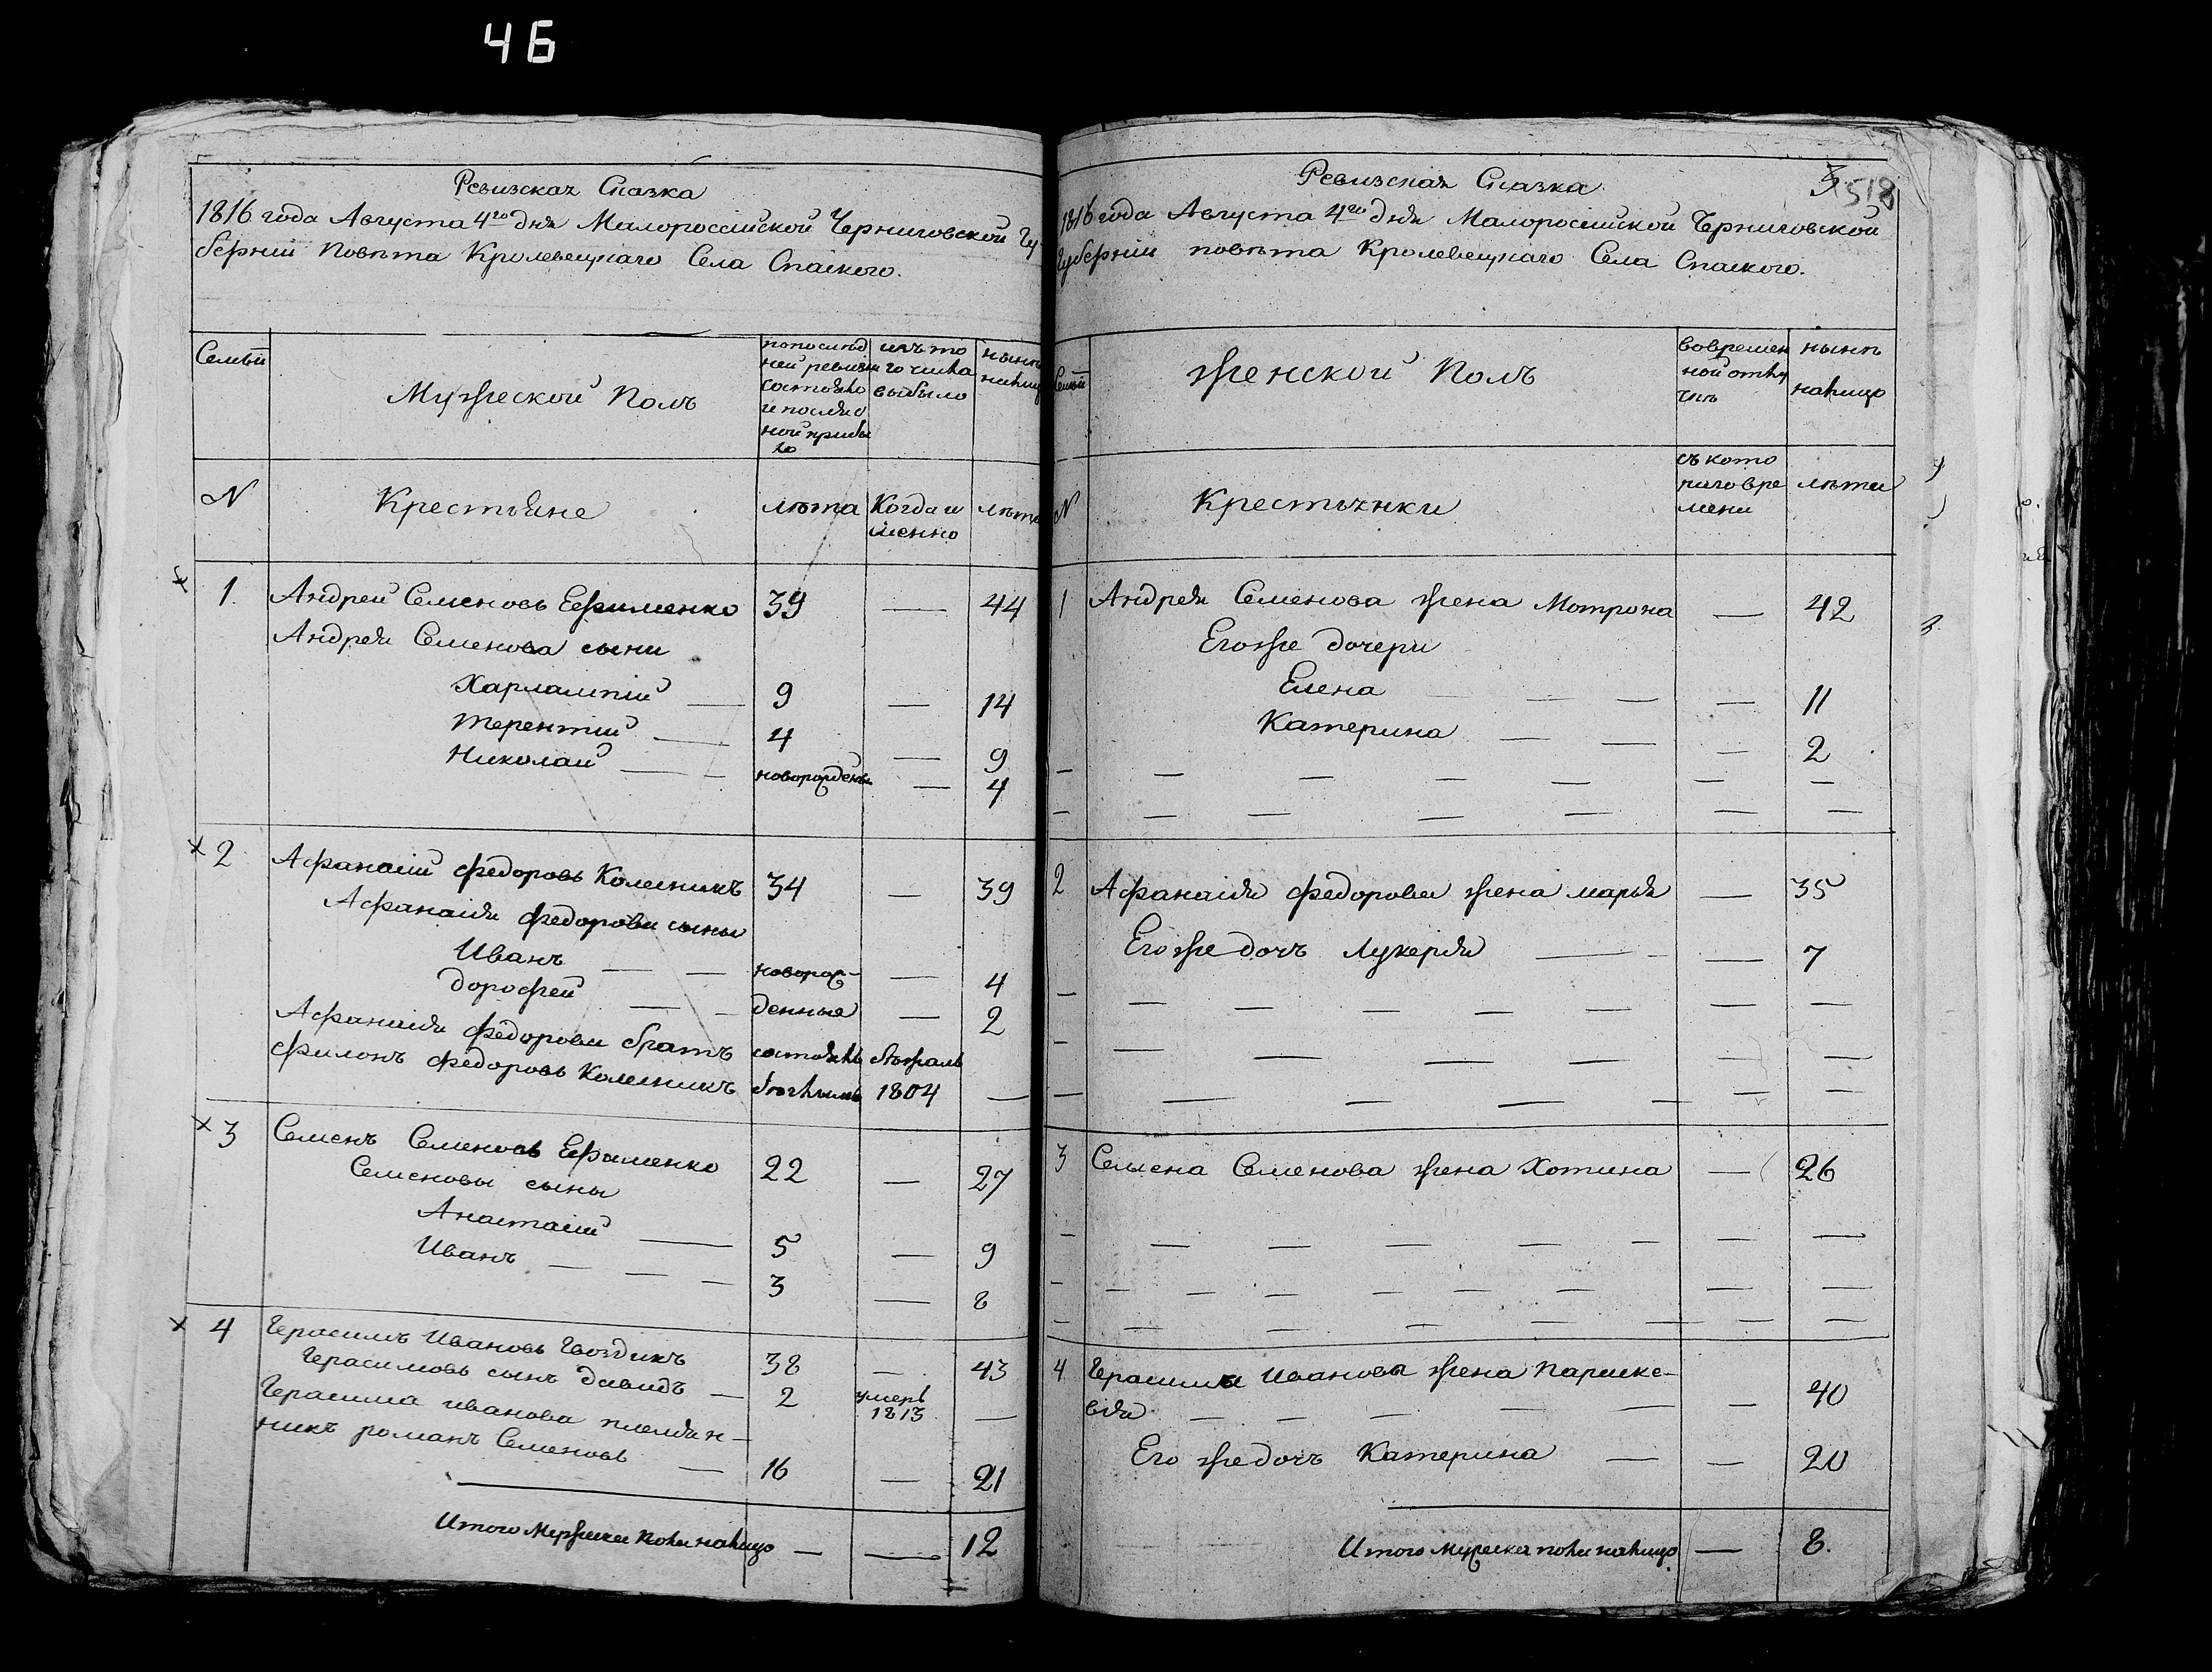 46
Ревизская Сказка
1816 года Августа 4го дня Малороссiйской Черниговской Гу-
бернiи Повѣта Кролевецкаго Села Спаского.
Семьи
Мужеской Полъ
по послѣд
ней ревизiи
состояло
и послѣ о
ной прибы
ло
изъ то
го числа
выбыло
нынѣ
налицо
N
Крестьяне
лѣта
Когда и
менно
лѣта
1. Андрей Семеновъ Ефименко 39 — 44
Андрея Семенова сыни
Харлампiй — 9 — 14
Терентiй — 4 — 9
Николай — — новорожденъ — 4
2 Афанасiй Федоровъ Колесникъ 34 — 39
Афанасiя Федорова сыны
Иванъ — — новорож- — 4
Дорофей — — денные — 2
Афанасiя Федорова братъ состоялъ бѣжалъ
Филонъ Федоровъ Колесникъ бѣглымъ 1804 —
3 Семенъ Семеновъ Ефименко 22 — 27
Семеновы сыны
Анастасiй — 5 — 9
Иванъ — — — 3 — 8
4 Герасимъ Ивановъ Гвоздикъ 38 — 43
Герасимовъ сынъ Давидъ — 2 умеръ 1813 —
Герасима Иванова племян-
никъ Романъ Семеновъ — 16 — 21
Итого Мужеска пола налицо — — 12
Ревизская Сказка
3 518
1816 года Августа 4го дня Малоросiйской Черниговской
Губернiи повѣта Кролевецкаго Села Спаского.
Семьи
Женской Полъ
во времен
ной отлу
чкѣ
нынѣ
налицо
N
Крестьянки
съ кото
раго вре
мени
лѣта
1 Андрея Семенова жена Мотрона — 42
Его же дочери
Елена — — — 11
Катерина — — — 2
2 Афанасiя Федорова жена Марья — 35
Его же дочъ Лукерiя — — — 7
3 Семена Семенова жена Хотина — 26
4 Герасима Иванова жена Параске-
вiя — — — — — — 40
Его же дочъ Катерина — — 20
Итого Мужеска пола налицо — 8.